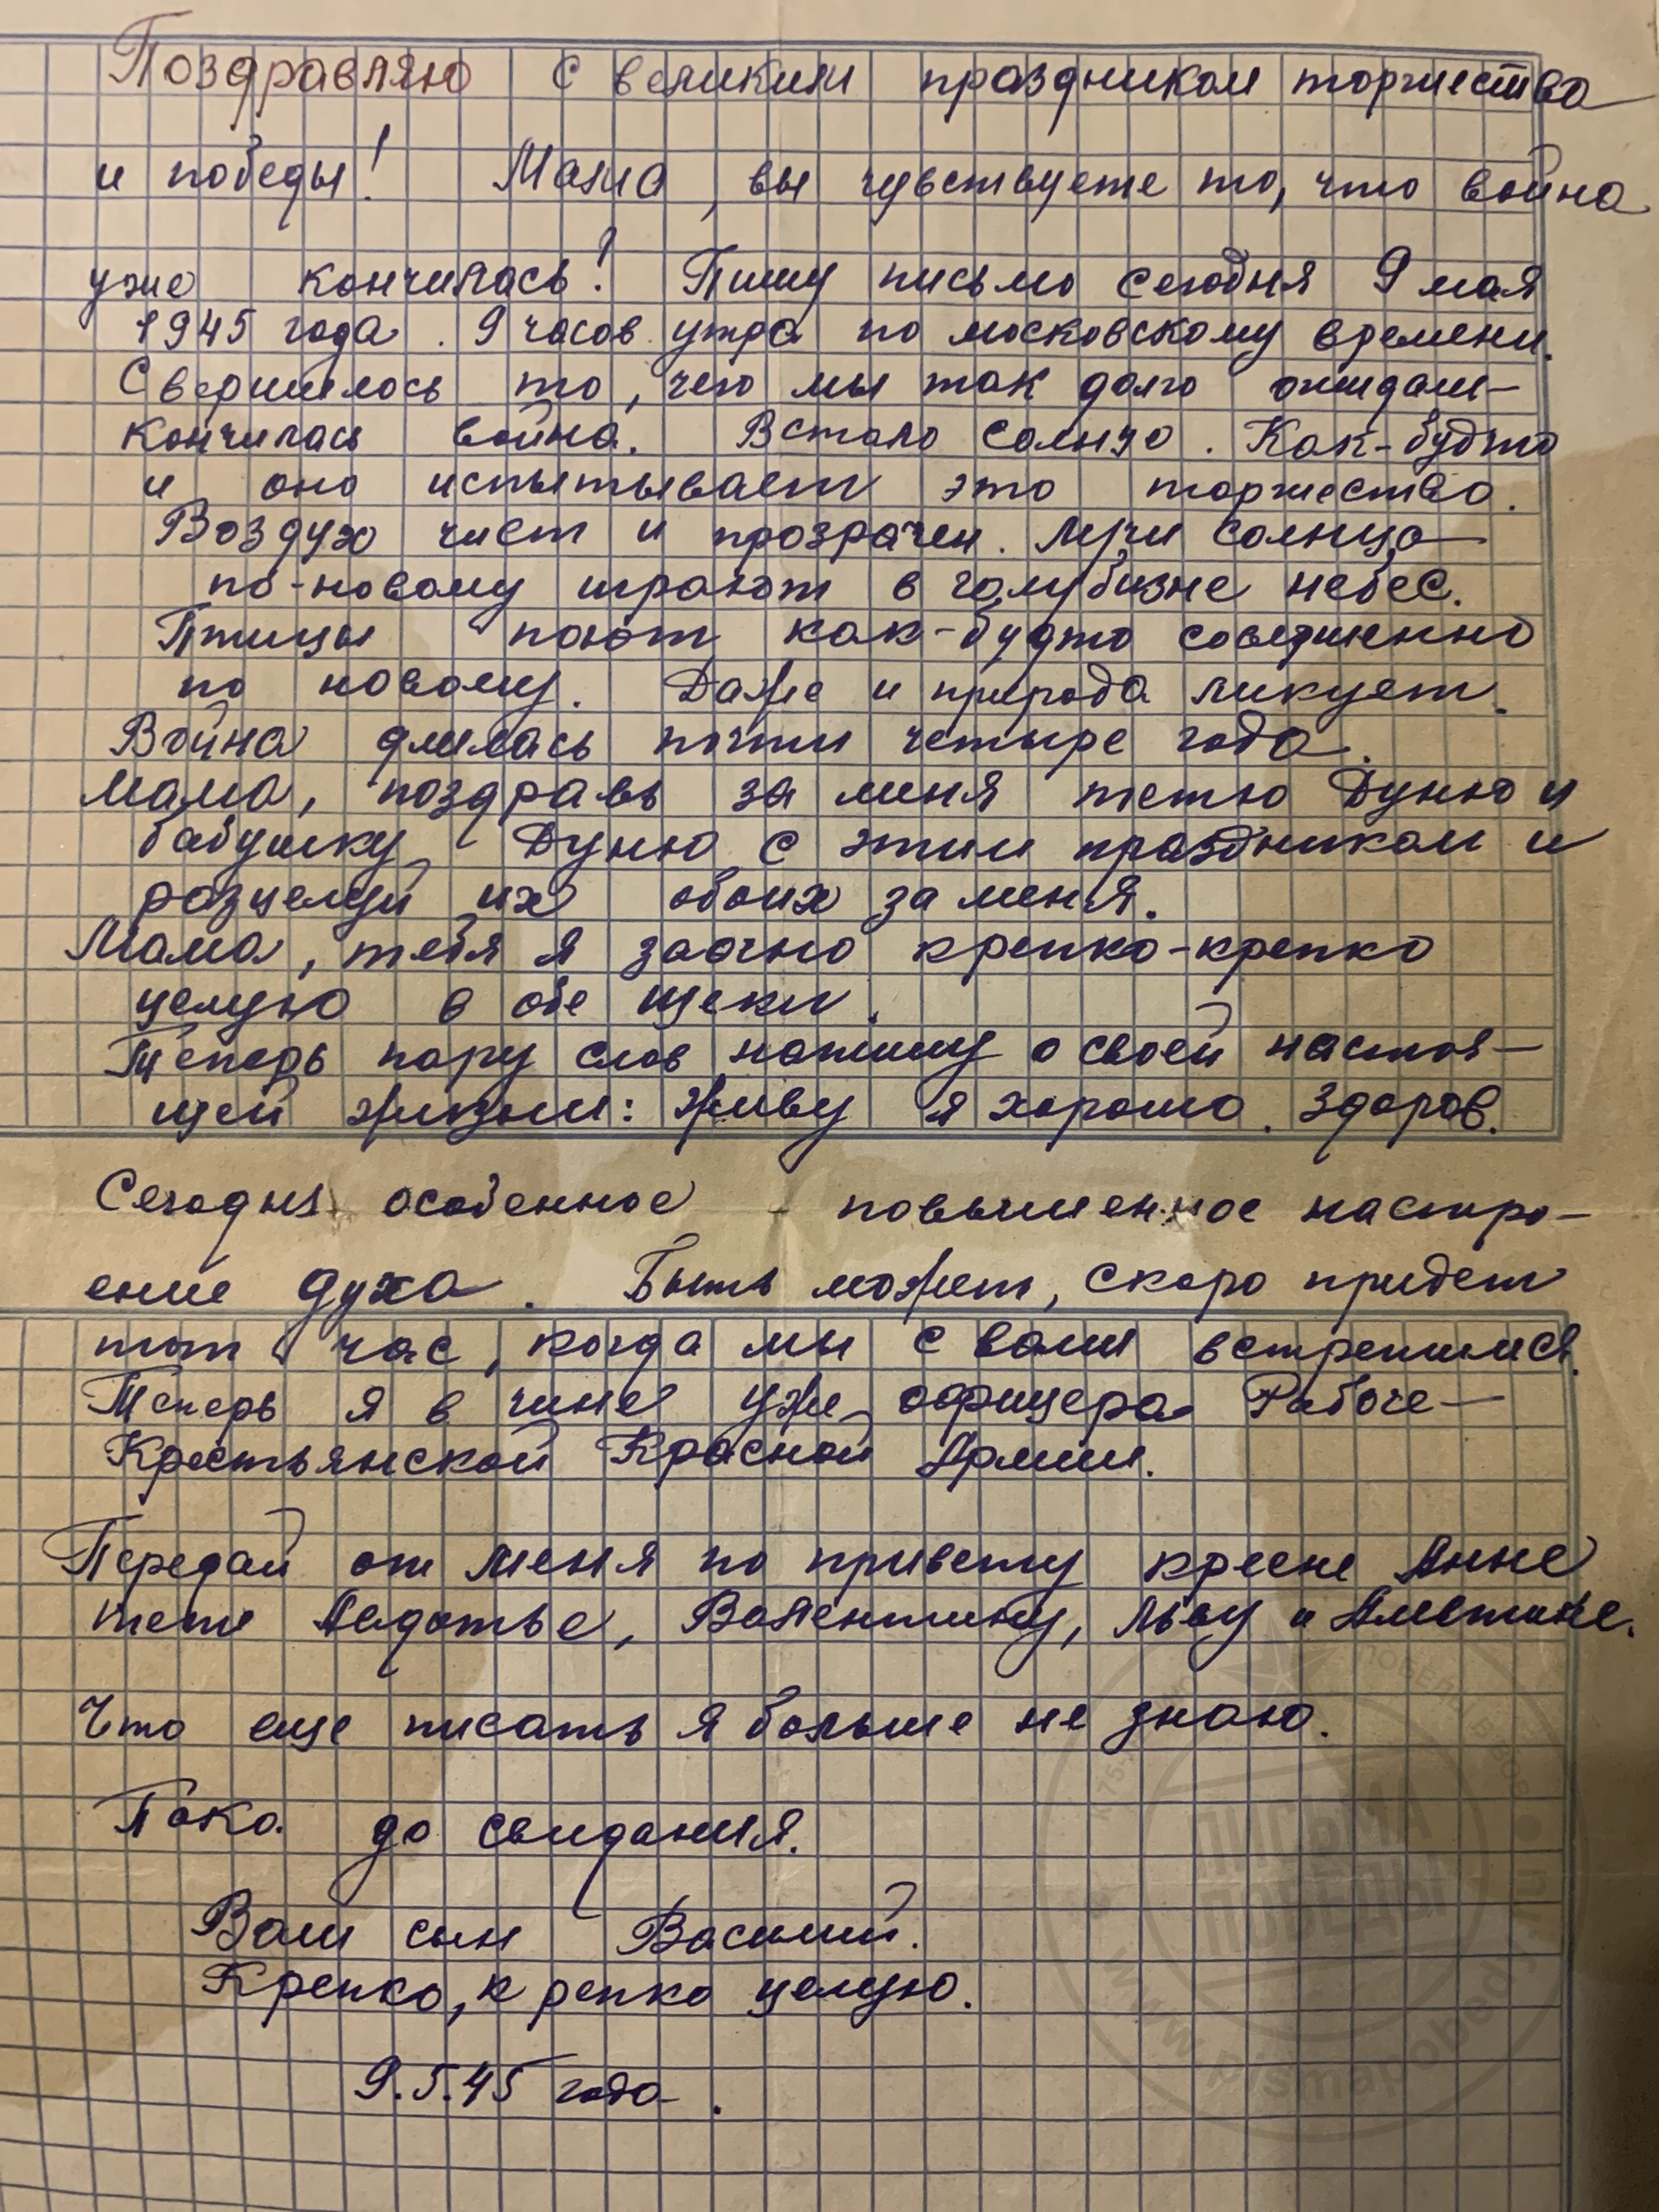 Поздравляю с великим праздником торжества
и победы! Мама, вы чувствуете то, что война
уже кончилась! Пишу письмо сегодня 9 мая
1945 года. 9 часов утра по московскому времени.
Свершилось то, чего мы так долго ожидали –
кончилась война. Встало солнцо. Как-будто
и оно испытывает это торжество.
Воздух чист и прозрачен. Лучи солнца
по-новому играют в голубизне небес.
Птицы поют как-будто совершенно
по новому. Даже и природа ликует.
Война длилась почти четыре года.
Мама, поздравь за меня тетю Дуню и
бабушку Дуню с этим праздником и
розцелуй их обоих за меня.
Мама, тебя я заочно крепко-крепко
целую в обе щеки.
Теперь пару слов напишу о своей настоя-
щей жизни: живу я хорошо. Здоров.
Сегодня особенное - повышенное настро-
ение духа. Быть может, скоро придет
тот час, когда мы с вами встретимся.
Теперь я в чине уже офицера Рабоче-
Крестьянской Красной Армии.
Передай от меня по привету кресне Анне
тете Авдотье, Валентину, Льву и Алевтине.
Что еще писать я больше не знаю.
Пока до свидания.
Ваш сын Василий.
Крепко, крепко целую.
9.5.45 года.
ПИСЬМА
ПОБЕДЫ
www.pismapobedy.ru